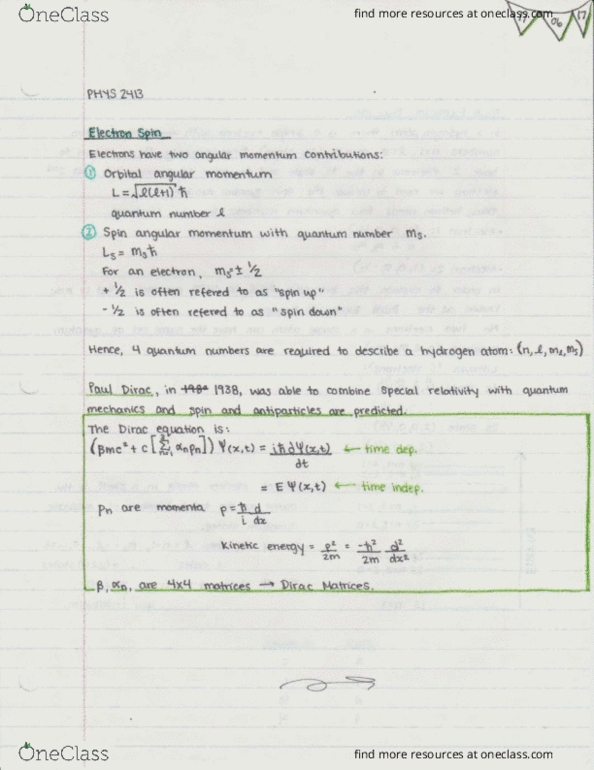 OneClass
find more resources at oneclass.com
06 17
PHYS 2413
Electron Spin
Electrons have two angular momentum contributions:
① Orbital angular momentum
L = √l(l+1) ħ
quantum number l
② Spin angular momentum with quantum number ms.
Ls = msħ
For an electron, ms = ± 1/2
+ 1/2 is often refered to as "spin up"
- 1/2 is often refered to as "spin down"
Hence, 4 quantum numbers are required to describe a hydrogen atom: (n, l, ml, ms)
Paul Dirac, in 1938, was able to combine special relativity with quantum
mechanics and spin and antiparticles are predicted.
The Dirac equation is:
(βmc² + c[Σ αnpn]) Ψ(x,t) = iħdΨ(x,t)/dt ← time dep.
= E Ψ(x,t) ← time indep.
pn are momenta p = ħ/i d/dx
Kinetic energy = p²/2m = -ħ²/2m d²/dx²
β, αn, are 4x4 matrices → Dirac Matrices.
OneClass
find more resources at oneclass.com